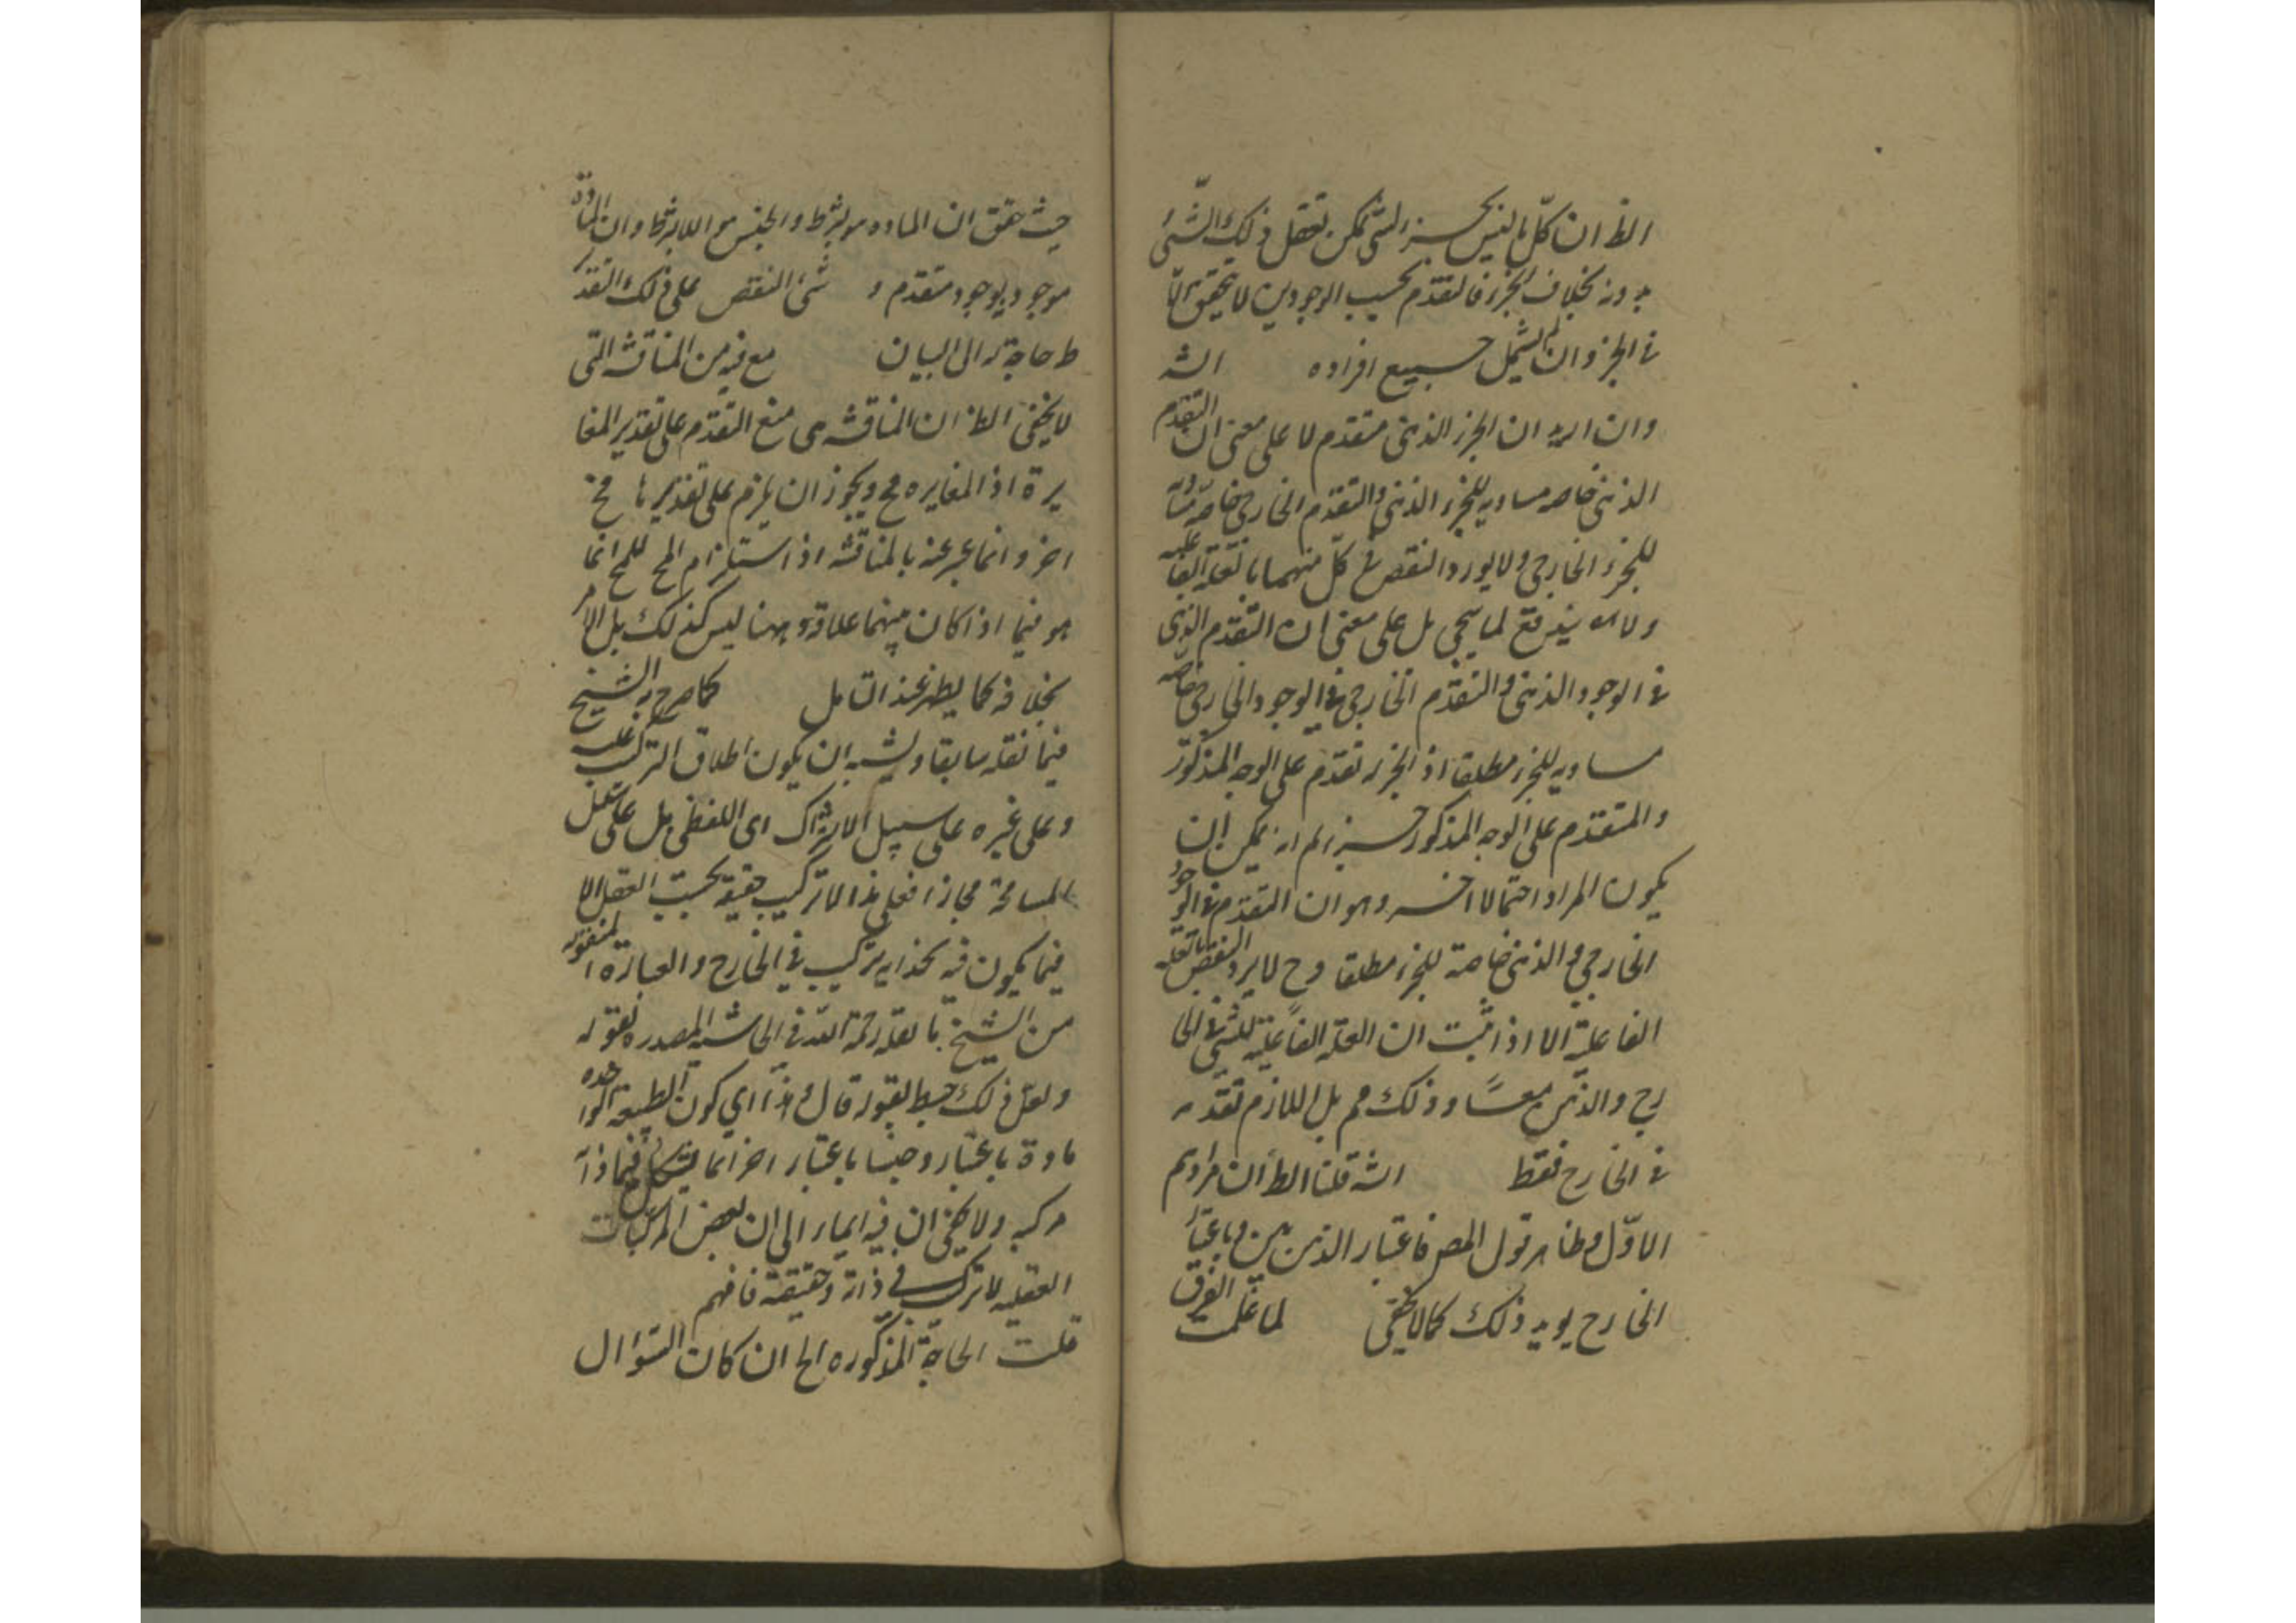 الظ ان كلّ ما ليس بجزء الشئ يمكن تعقل ذلك الشئ
بدونه بخلاف الجزء فالتقدّم بحسب الوجودين لا يتحقق الّا
فى الجزء وان لم يشمل جميع افراده الشه
وان اريد ان الجزء الذهنى متقدم لا على معنى ان التقدّم
الذهنى خاصه مساويه للجزء الذهنى والتقدّم الخارجى خاصّة
للجزء الخارجى ولا يورد النقض فى كلّ منهما بالعلّة الفا عليه
ولا يندفع لما سيجى بل على معنى ان التقدّم الذهنى
فى الوجود الذهنى والتقدّم الخارجى فى الوجود الخارجى خاصّه
مساويه للجزء مطلقا اذ الجزء له تقدّم على الوجه المذكور
والمتقدم على الوجه المذكور جزء ثم انه يمكن ان
يكون المراد احتمالا اخر وهو ان التقدّم فى الوجود
الخارجى والذهنى خاصة للجزء مطلقا وح لا يرد النقض بالعلّه
الفاعليّة الا اذا ثبت ان العلّة الفاعليّة للشئ فى الخا
رج والذهن معًا وذلك مم بل اللازم تقدّمه
فى الخارج فقط الشه قلنا الظ ان مرادهم
الاوّل وظاهر قول المص فاعتبار الذهن بين وباعتبار
الخارج يويد ذلك كما لا يخفى لما علمت الفرق
حيث حقق ان الماده هو بشرط والجنس هو اللابشرط وان المادة
موجود بوجود متقدم و شئ النقص على ذلك التقد
ط حاجة له الى البيان مع فيه من المناقشه التى
لا يخفى الظ ان المناقشه هى منع التقدّم على تقدير المغا
يرة اذ المغايره مح ويجوز ان يلزم على تقديرها مح
اخر وانما عبر عنه بالمناقشه اذ استلزام المح للمح انما
هو فيما اذا كان بينهما علاقة وههنا ليس كذلك بل الامر
بخلافه كما يظهر عند التامل كما صرح به الشيخ
فيما نقله سابقا ويشبه ان يكون اطلاق التركيب عليه
وعلى غيره على سبيل الاشتراك اى اللفظى بل على سبيل
المسامحة مجازا فعلى هذا لا تركيب حقيقة بحسب العقل الا
فيما يكون فيه بحذائه تركيب فى الخارج والعبارة المنقوله
من الشيخ ما نقله رحمة الله فى الحاشيه المصدره بقوله
ولعلّ ذلك حيث يقول قال وهذا اي كون الطبيعة الواحده
مادة باعتبار وجنسا باعتبار اخر انما يشكل فيما ذاته
مركبه ولا يخفى ان فيه ايماء الى ان بعض المركبات
العقليه لا تركيب فى ذاته وحقيقته فافهم
قلت الحاجة المذكوره الخ ان كان السّؤال